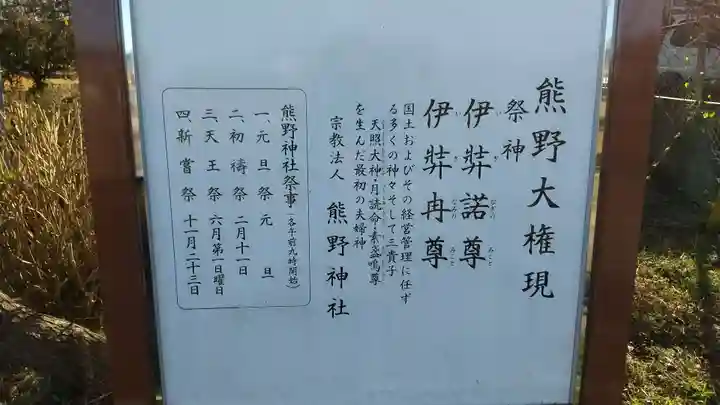 熊野大権現
祭神
伊弉諾尊
伊弉冉尊
国土およびその経営管理に任ず
る多くの神々そして三貴子
天照大神・月読命・素盞嗚尊
を生んだ最初の夫婦神
宗教法人 熊野神社
熊野神社祭事（各午前九時開始）
一、元旦祭 元旦
二、初祷祭 二月十一日
三、天王祭 六月第一日曜日
四、新嘗祭 十一月二十三日